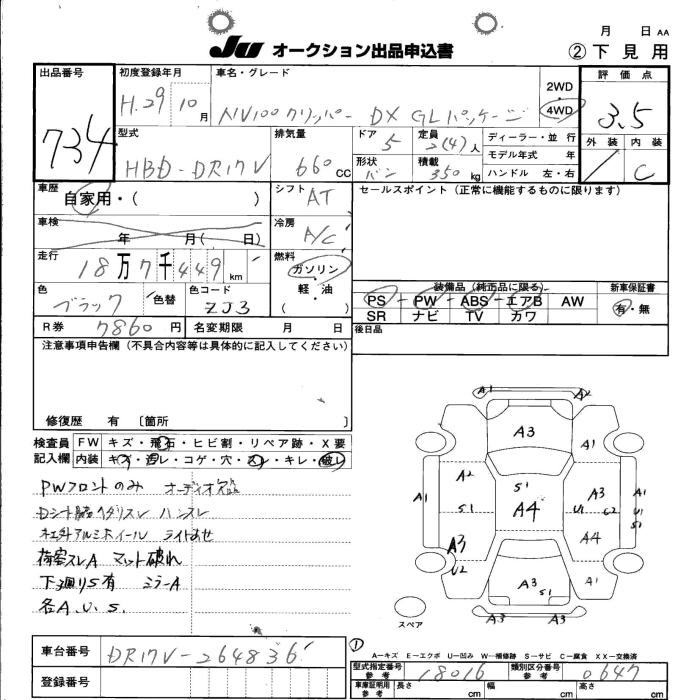 月 日 AA
JU オークション出品申込書
② 下見用
出品番号
734
初度登録年月
H.29 10月
車名・グレード
NV100クリッパー DX GLパッケージ
2WD
4WD
評価点
3.5
外装 内装
C
型式
HBD-DR17V
排気量
660 CC
ドア
5
定員
2(4)人
形状
バン
積載
350kg
ディーラー・並行
モデル年式 年
ハンドル 左・右
車歴
自家用・( )
シフト
AT
セールスポイント(正常に機能するものに限ります)
車検
年 月( 日)
冷房
A/C
走行
18万7千449km
燃料
ガソリン
・
軽油
・
色
ブラック
色替
色コード
ZJ3
装備品(純正品に限る)
PS-PW-ABS-エアB AW
SR ナビ TV カワ
新車保証書
有・無
R券 7860円
名変期限 月 日
後日品
注意事項申告欄(不具合内容等は具体的に記入してください)
修復歴 有 〔箇所 〕
検査員
記入欄
FW キズ・飛石・ヒビ割・リペア跡・X要
内装 キズ・汚レ・コゲ・穴・スレ・キレ・破レ
PWフロントのみ オーディオ欠品
ハンスレ
社外アルミホイール
荷室スレA マット破れ
下廻りS有 ミラーA
各A.U.S.
A1 A2
A3
A1
A2
S1
A1
S1
A4
A3
U1 U2
A1
U1
S1
A3
U2
A4
A3
S1
A1
A3 A3
スペア
①
A-キズ E-エクボ U-凹み W-補修跡 S-サビ C-腐食 XX-交換済
車台番号
DR17V-264836
登録番号
型式指定番号
参考
18016
類別区分番号
参考
0647
車庫証明用
参考
長さ cm 幅 cm 高さ cm